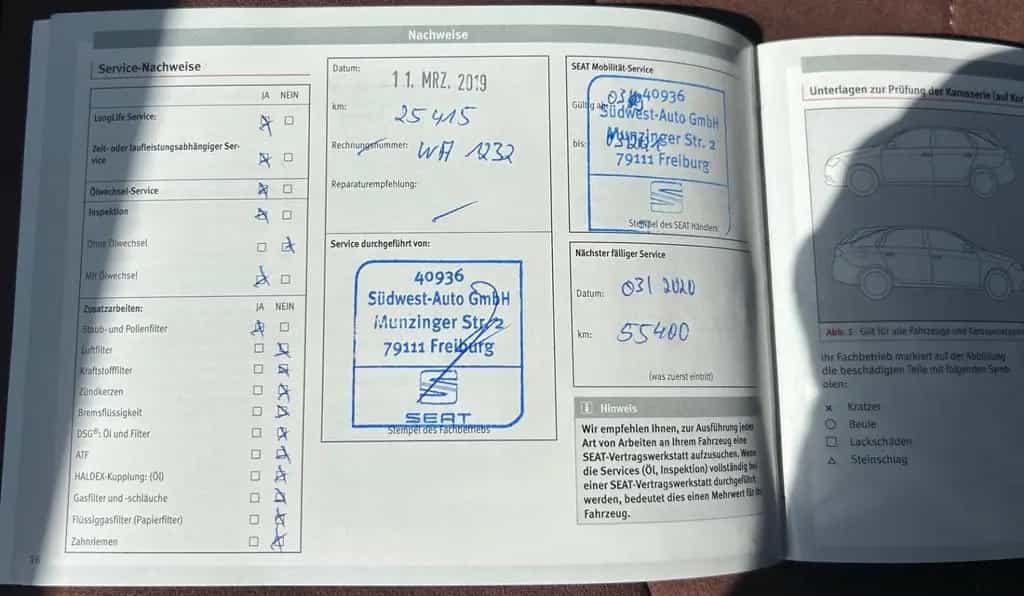 Nachweise
Service-Nachweise
JA NEIN
LongLife Service:
Zeit- oder laufleistungsabhängiger Ser-
vice
Ölwechsel-Service
Inspektion
Ohne Ölwechsel
Mit Ölwechsel
Zusatzarbeiten: JA NEIN
Staub- und Pollenfilter
Luftfilter
Kraftstofffilter
Zündkerzen
Bremsflüssigkeit
DSG®: Öl und Filter
ATF
HALDEX-Kupplung: (Öl)
Gasfilter und -schläuche
Flüssiggasfilter (Papierfilter)
Zahnriemen
Datum:
11. MRZ. 2019
km:
25415
Rechnungsnummer: WA 1232
Reparaturempfehlung:
Service durchgeführt von:
40936
Südwest-Auto GmbH
Munzinger Str. 2
79111 Freiburg
SEAT
Stempel des Fachbetriebs
SEAT Mobilität-Service
Gültig ab:
bis:
40936
Südwest-Auto GmbH
Munzinger Str. 2
79111 Freiburg
Stempel des SEAT Händlers
Nächster fälliger Service
Datum: 03/2020
km: 55400
(was zuerst eintritt)
Hinweis
Wir empfehlen Ihnen, zur Ausführung jeder
Art von Arbeiten an Ihrem Fahrzeug eine
SEAT-Vertragswerkstatt aufzusuchen.
die Services (Öl, Inspektion) vollständig
einer SEAT-Vertragswerkstatt durchgeführt
werden, bedeutet dies einen Mehrwert für
Fahrzeug.
Unterlagen zur Prüfung der Karosserie (auf
Abb. Gilt für alle Fahrzeuge und
Ihr Fachbetrieb markiert auf der Abbildung
die beschädigten Teile mit folgenden Symb
olen:
Kratzer
Beule
Lackschäden
Steinschlag